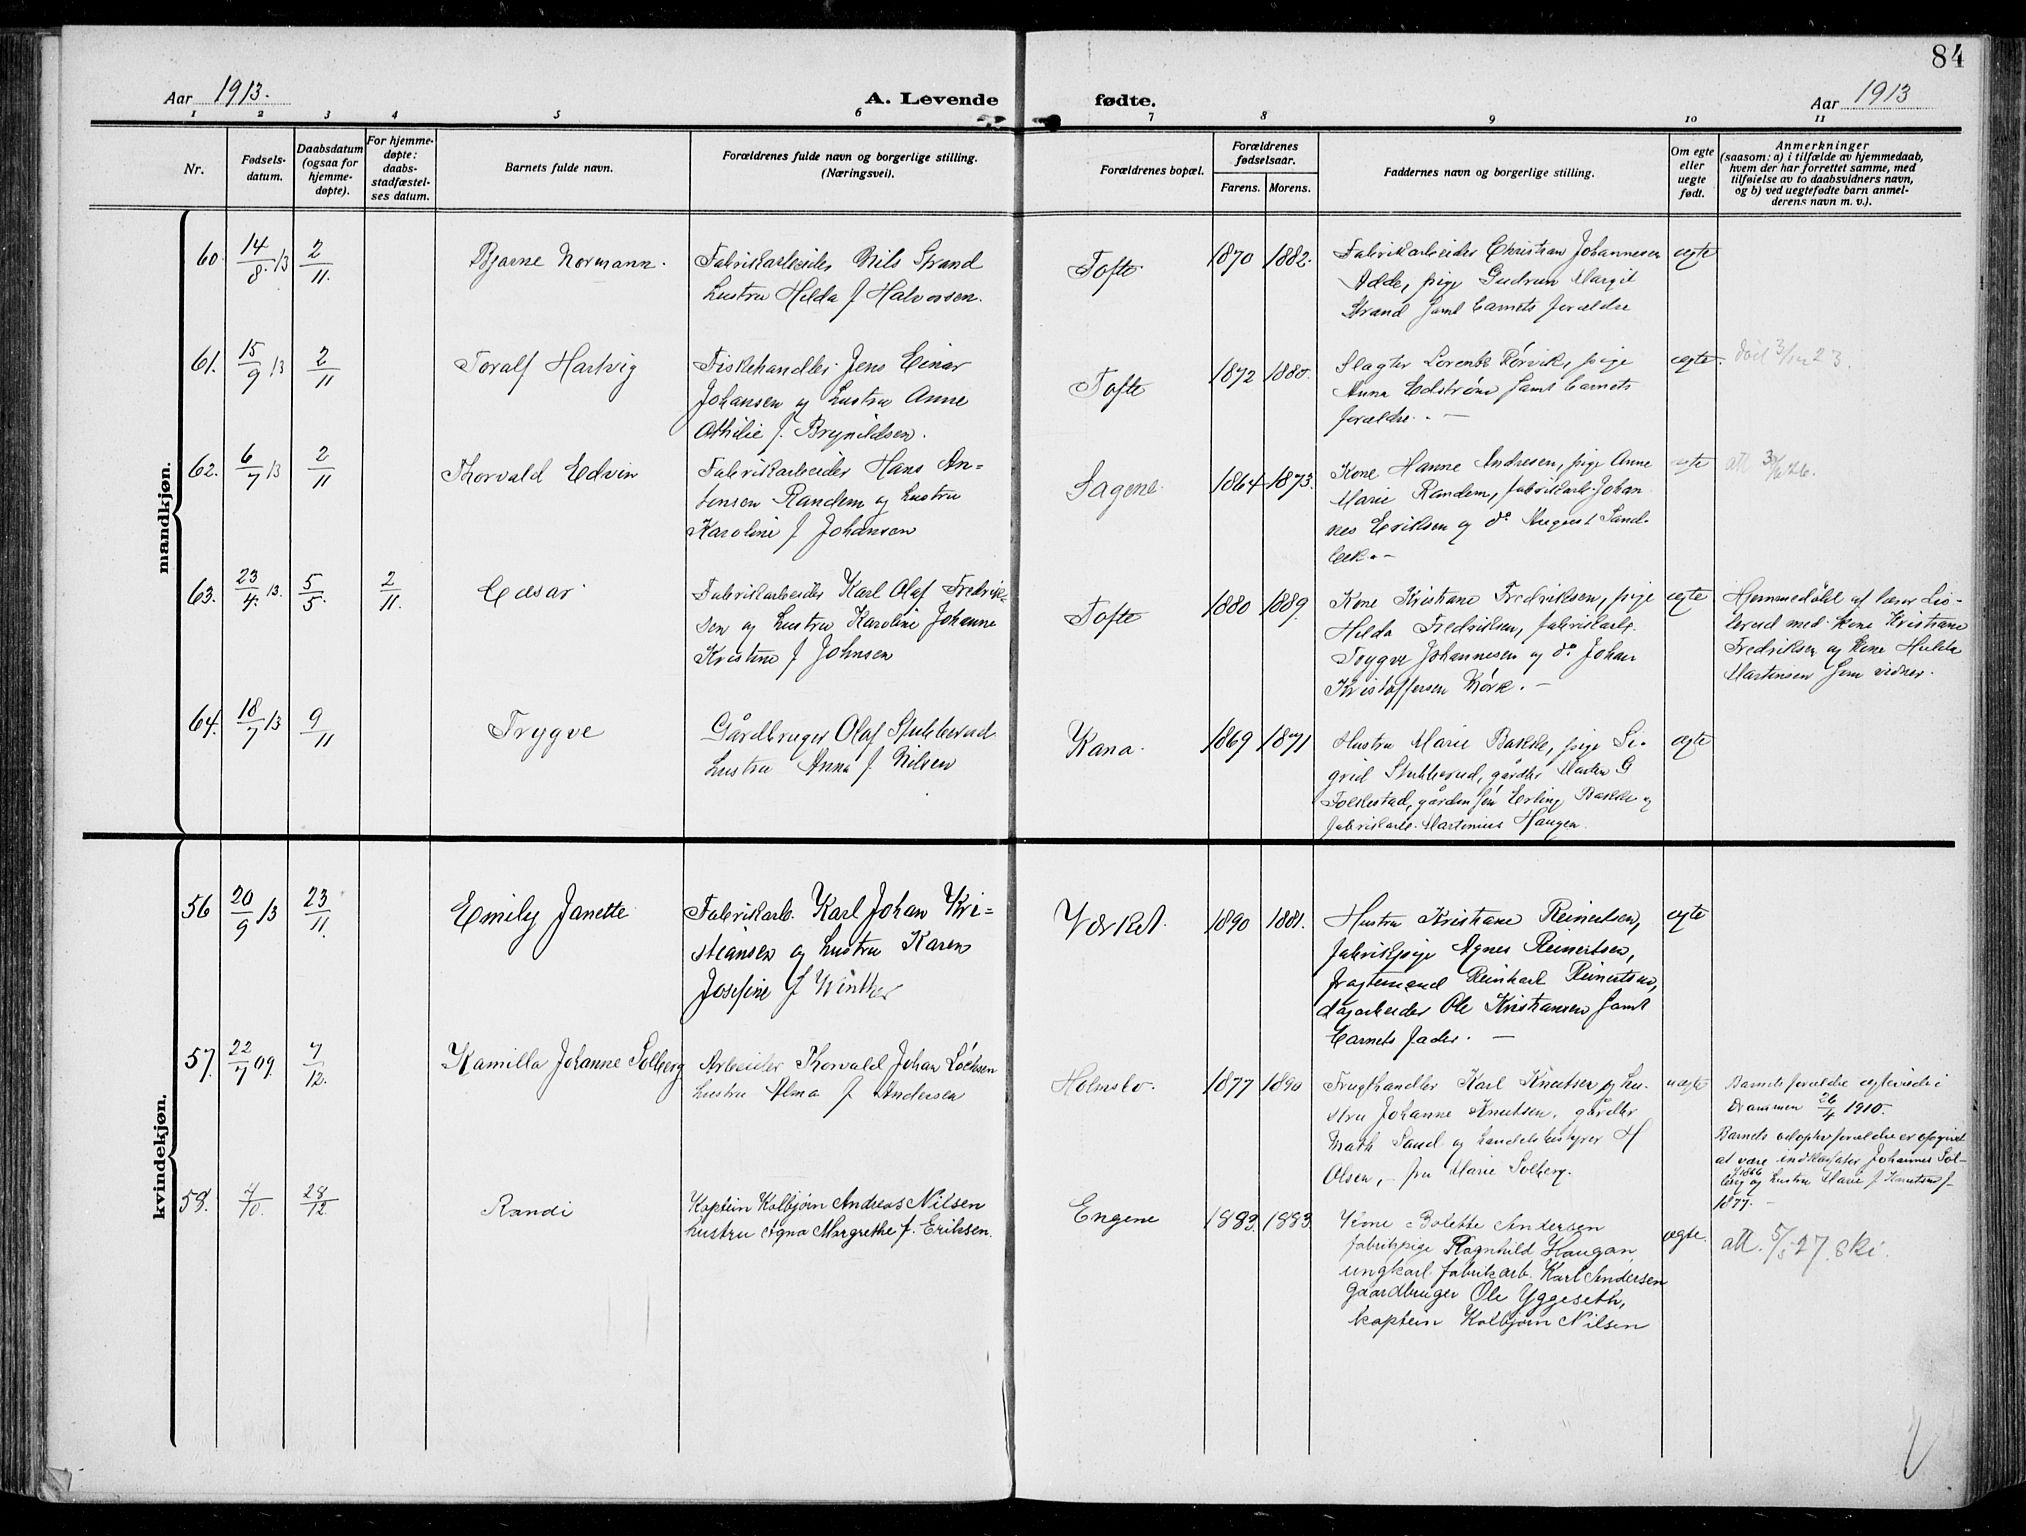 84
Aar 1913. A. Levende fødte. Aar 1913
1 2 3 4 5 6 7 8 9 10 11
Nr.
Fødsels-
datum.
Daabsdatum
(ogsaa for
hjemme-
døpte).
For hjemme-
døpte:
daabs-
stadfæstel-
ses datum.
Barnets fulde navn.
Forældrenes fulde navn og borgerlige stilling.
(Næringsvei).
Forældrenes bopæl.
Forældrenes
fødselsaar.
Farens. Morens.
Faddernes navn og borgerlige stilling.
Om egte
eller
uegte
født.
Anmerkninger
(saasom: a) i tilfælde av hjemmedaab,
hvem der har forrettet samme, med
tilføielse av to daabsvidners navn,
og b) ved uegtefødte barn anmel-
derens navn m. v.).
mandkjøn.
60. 14/8. 13 2/11. Bjarne Normann.
Fabrikarbeider Nils Strand
hustru Hilda f Halvorsen.
Tofte 1870 1882.
Fabrikarbeider Christian Johannesen
pige Gudrun Margit
Strand samt barnets forældre
egte
61. 15/9 13 2/11 Toralf Hartvig
Fiskehandler Jens Einar
Johansen og hustru Anne
Othilie f. Brynildsen.
Tofte 1872 1880.
Slagter Lorentz Rørvik, pige
Anna Edstrøm samt barnets
forældre. —
egte.
død 3/12 23.
62. 6/7 13 2/11 Thorvald Edvin
Fabrikarbeider Hans An-
tonsen Randem og hustru
Karoline f Johansen
Sagene. 1864 1873.
Kone Hanne Andresen, pige Anne
Marie Randem, fabrikarb. Johan
nes Eriksen og do August Sand-
bek. —
egte
63. 23/4. 13. 5/5. 2/11. Edvar
Fabrikarbeider Karl Olaf Fredrik-
sen og hustru Karoline Johanne
Kristine f Johnsen
Tofte 1880 1889.
Kone Kristiane Fredriksen, pige
Hilda Fredriksen, fabrikarb.
Trygve Johannesen og do Johan
Kristoffersen Mørk. —
egte
Hjemmedøbt af lærer Lio-
berud med kone Kristiane
Fredriksen og kone Hulda
Martinsen som vidner.
64. 18/7 13 9/11 Trygve
Gårdbruger Olaf Stubberud
hustru Anna f Nilsen
Kana. 1869 1871
Hustru Marie Bakke, pige Si-
grid Stubberud, gårdbr Martin G
Tolkestad, gårdm søn Erling Bakke og
fabrikarb. Martinius Haugen.
egte
kvindekjøn.
56 20/9 13 23/11. Emily Janette
Fabrikarb. Karl Johan Kri-
stiansen og hustru Karen
Josefine f Winther
Værket. 1890 1881.
Hustru Kristiane Reinertsen,
fabrikpige Agnes Reinertsen,
fragtemand Reinhart Reinertsen,
dagarbeider Ole Kristiansen samt
barnets fader. —
egte
57. 22/7 09. 7/12. Kamilla Johanne Solberg
Arbeider Thorvald Johan Lochsen
hustru Alma f Andersen
Holmsbo. 1877 1890
Frugthandler Karl Knutsen og hu-
stru Johanne Knutsen, gårdbr
Math Sand og handelsbestyrer H
Olsen, — fru Marie Solberg.
uegte
Barnets forældre egteviede i
Drammen 26/4 1910.
Barnets adoptivforældre er opgivet
at være indkassator Johannes Sol-
berg f 1866 og hustru Marie f Knutsen f
1877. —
58. 7/10. 28/12. Randi
Kaptein Kolbjørn Andreas Nilsen
hustru Agna Margrethe f. Eriksen.
Engene 1883. 1883.
Kone Bolette Andersen
fabrikpige Ragnhild Haugan,
ungkarl fabrikarb. Karl Andersen
Gaardbruger Ole Yggeseth,
kaptein Kolbjørn Nilsen
egte.
att. 5/5 27. ski.